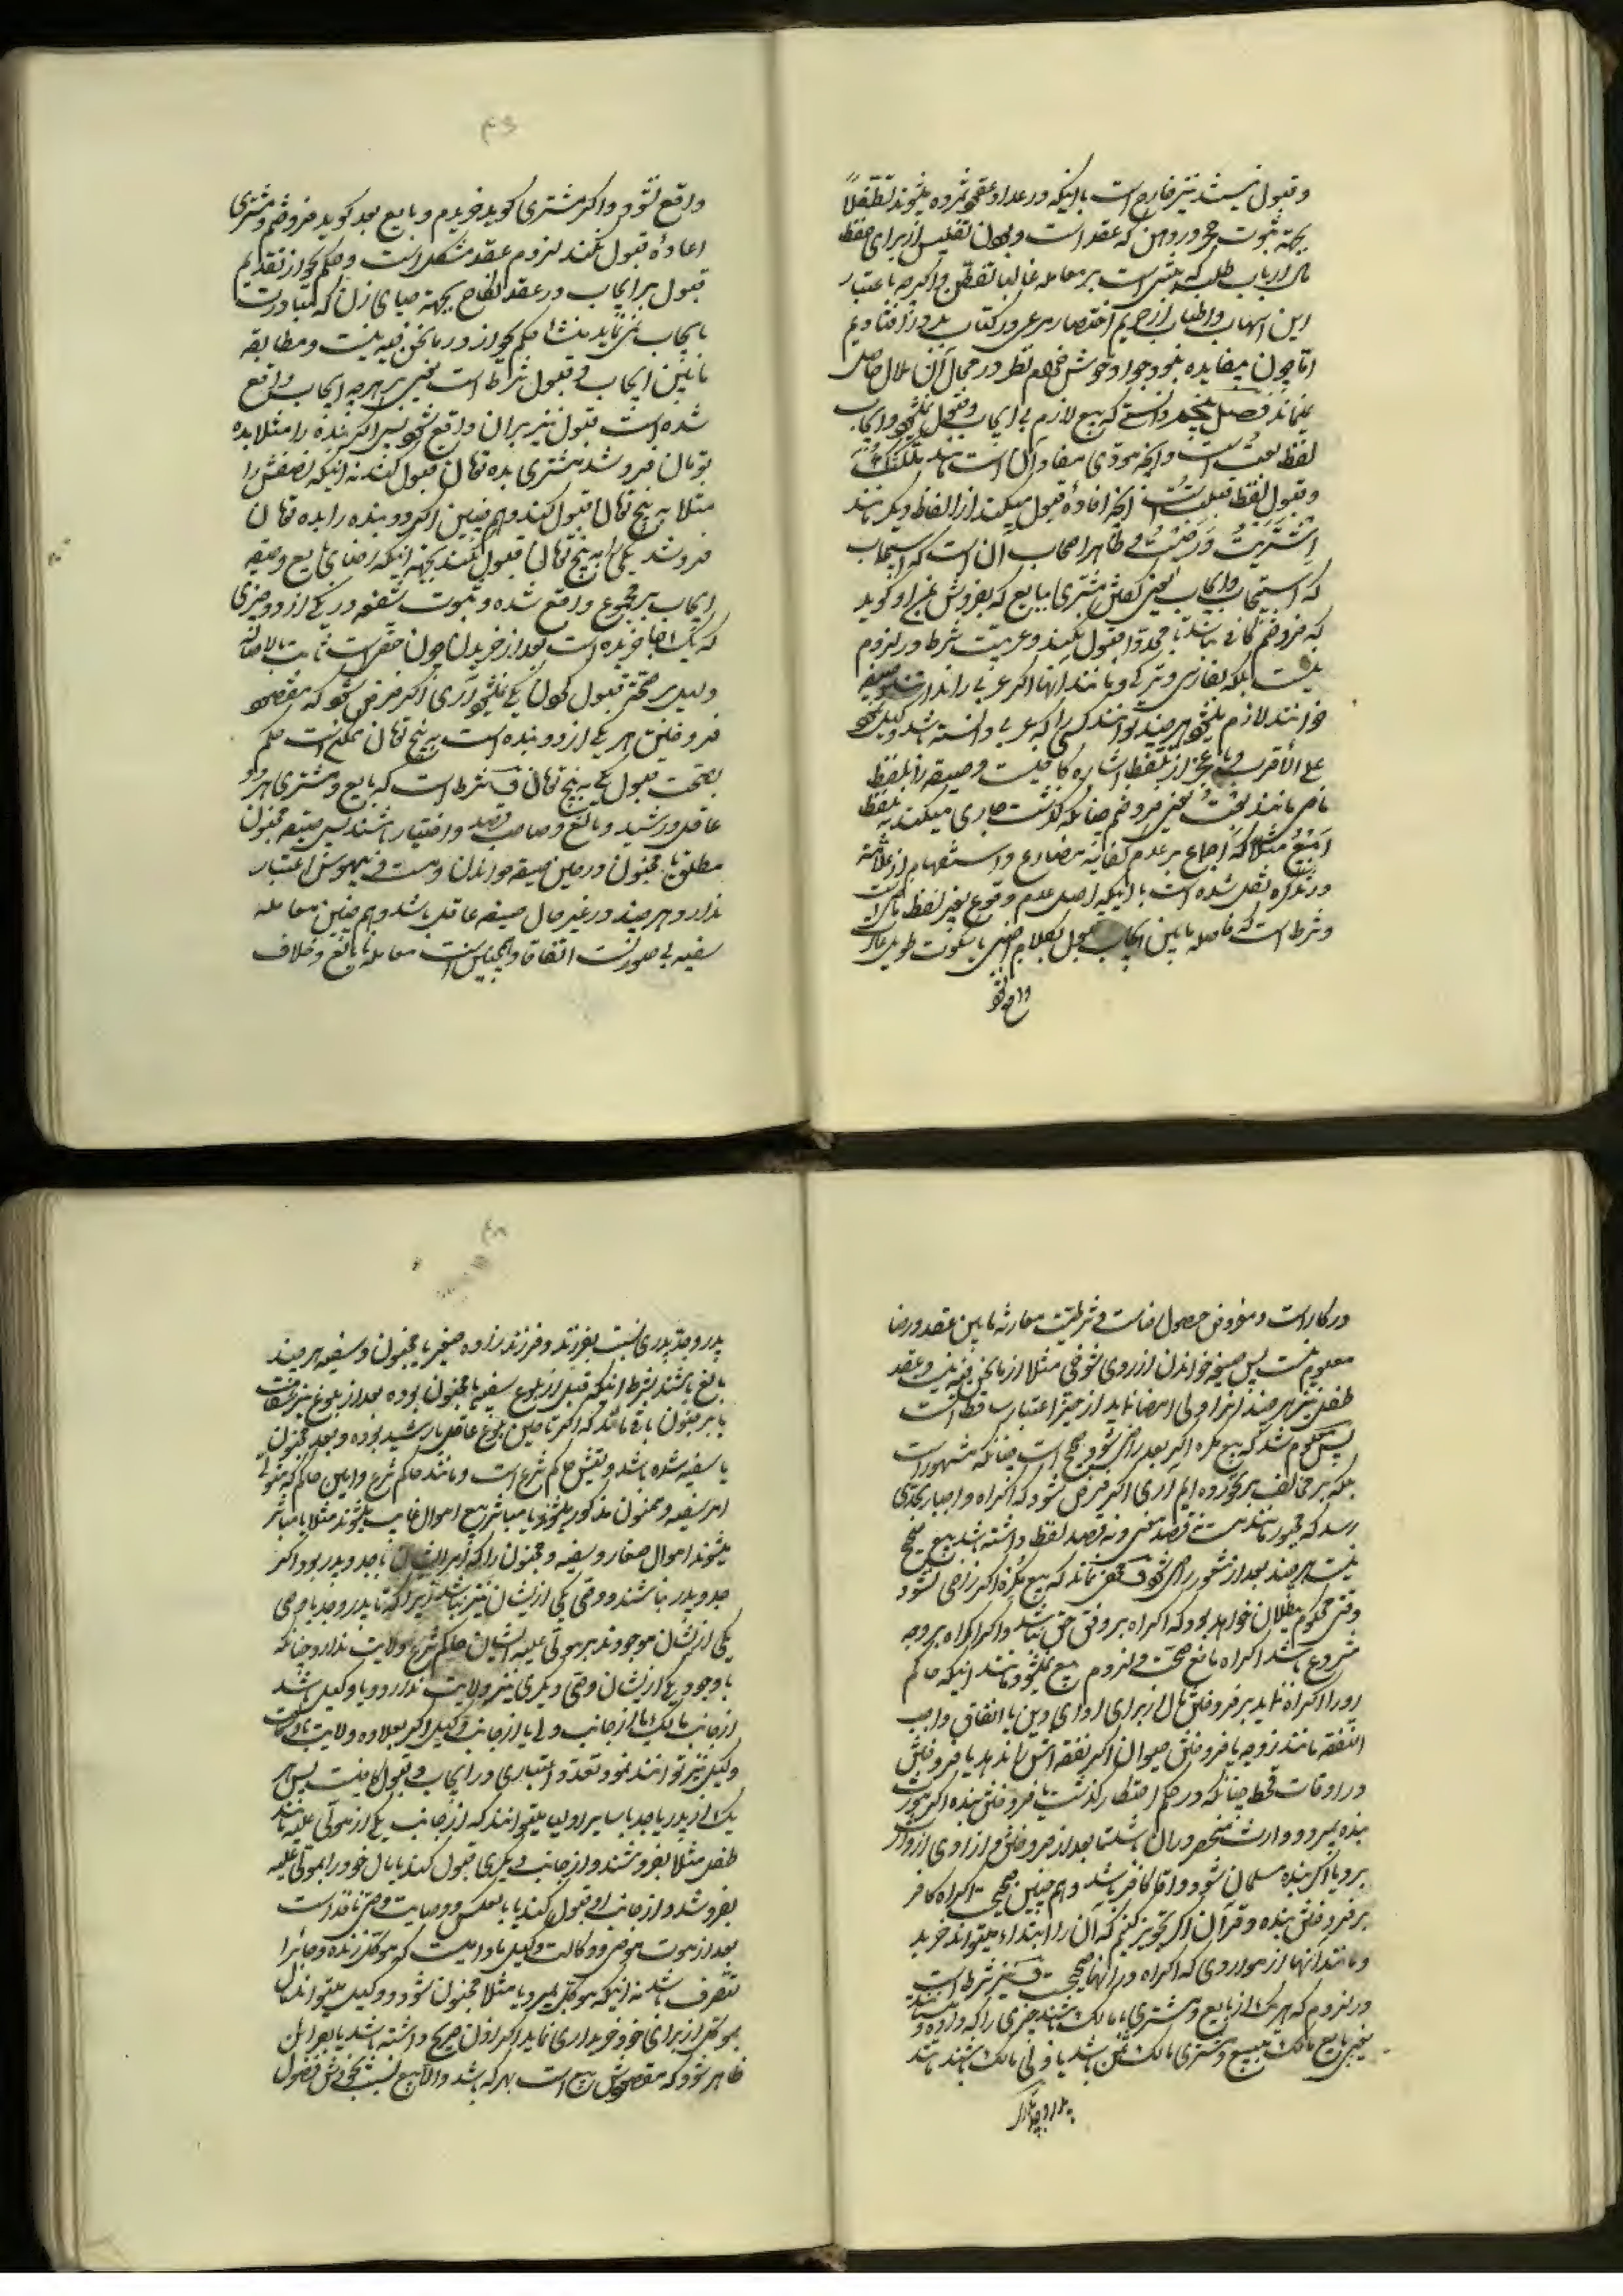 و قبول نیستند نیز خارج است با اینکه در عداد عقود شمرده میشوند تطفلاً
بجهة ثبوت حجر در رهن که عقد است و چون تفلیس از برای حفظ
مال ارباب طلب که مبتنی است بر معامله غالبا و اگر چه باعتبار
این اسهاب و اطناب از حریم اختصار مرعی در کتاب بدور افتادیم
اما چون مفایده بود خواهد نظر در جمال آن ملال حاصل
نمیماند فصل دانستی که بیع لازم بی ایجاب و قبول نمیشود و ایجاب
لفظ بعت است و آنچه مؤدی مفاد آن است مانند ملّکتک
و قبول لفظ قبلت است و آنچه افادهٔ قبول میکند از الفاظ دیگر مانند
اشتریت و رضیت و ظاهر اصحاب آن است که استیجاب
که استیجاب و ایجاب یعنی گفتن مشتری ببایع که بفروش بمن و او گوید
که فروختم کافی نباشد تا مجددا قبول نکند و عربیت شرط در لزوم
نیست بلکه بفارسی و ترکی و مانند آنها اگر عربی را ندانند صیغه
خوانند لازم میشود هر چند توانند کسی را که عربی دانسته باشد وکیل نمود
علی الاقرب و با عجز از تلفظ اشاره کافیست و صیغه را بلفظ
ماضی مانند بعت یعنی فروختم چنانکه گذشت جاری میکنند نه بلفظ
امر مثلا که اجماع بر عدم کفایة مضارع و استفهام از علامه
در تذکره نقل شده است با اینکه اصل عدم وقوع بغیر لفظ ماضی است
و شرط است که فاصله مابین ایجاب و قبول بکلام اجنبی یا سکوت طویل
واقع نشود
واقع نشود و اگر مشتری گوید خریدم و بایع بعد گوید فروختم و مشتری
اعادهٔ قبول نکند لزوم عقد مشکل است و حکم بجواز تقدیم
قبول بر ایجاب در عقد نکاح بجهة حیای زن که مبادرت
بایجاب نمی نماید منشا حکم بجواز در مانحن فیه نیست و مطابقه
مابین ایجاب و قبول شرط است یعنی بر هر چه ایجاب واقع
شده است قبول نیز بر آن واقع شود پس اگر بنده را مثلا بده
تومان فروشد مشتری بده تومان قبول کند نه اینکه نصفش را
مثلا به پنج تومان قبول کند و هم چنین اگر دو بنده را بده تومان
فروشد یکی را به پنج تومان قبول نکند بجهة اینکه رضای بایع و صیغه
ایجاب بر مجموع واقع شده و ثبوت شفعه در یکی از دو چیزی
که یک جا خریده است بعد از خریدن چون حقیست ثابت بالاصاله
دلیل صحة قبول کردن یکی نمیشود آری اگر فرض شود که مقصود
فروختن هر یکی از دو بنده است به پنج تومان ممکن است حکم
بصحت قبول یکی به پنج تومان ف شرط است که بایع و مشتری هر دو
عاقل و رشید و بالغ و صاحب قصد و اختیار باشند پس صیغه مجنون
مطلق یا مجنون در حین صیغه خواندن و مست و بیهوش اعتبار
ندارد هر چند در غیر حال صیغه عاقل باشد و هم چنین معامله
سفیه بی صورتست اتفاقا و همچنین است معامله نابالغ و خلاف
در کار است و مفروض حصول رضاست و شرطیت مقارنه مابین عقد و رضا
معلوم نیست پس صیغه خواندن از روی شوخی مثلا از مانحن فیه نیست و عقد
طفل نیز هر چند آنرا ولی امضا نماید از حیز اعتبار ساقط است
پس معلوم شد که بیع مکره اگر بعد راضی شود صحیح است چنانکه مشهور است
بلکه بر مخالف بر نخورده ایم آری اگر فرض شود که اکراه و اجبار بحدی
رسد که مجبور مانند مست نه قصد معنی و نه قصد لفظ داشته باشد بیع صحیح
نیست هر چند بعد از شعور راضی شود ف مخفی نماند که بیع مکره اگر راضی نشود
وقتی محکوم ببطلان خواهد بود که اکراه بر وفق حق نباشد و اگر اکراه بر وجه
مشروع باشد اکراه مانع صحت و لزوم بیع نمیشود مانند اینکه حاکم
او را اکراه نماید بر فروختن مال از برای ادای دین یا انفاق واجب
النفقه مانند زوجه یا فروختن حیوان اگر نفقه اش را ندهد یا فروختن
در اوقات قحط چنانکه در حکم احتکار گذشت یا فروختن بنده اگر مورث
بنده بمیرد و وارث منحصر در آن باشد تا بعد از فروختن و آزادی ارث
برد یا اگر بنده مسلمان شود و آقا کافر باشد و هم چنین صحیح است اکراه کافر
بر فروختن بنده و قرآن اگر تجویز کنیم که آن را ابتداء میتواند خرید
و مانند آنها از مواردی که اکراه در آنها صحیح است ف نیز شرط است
در لزوم که هر یک از بایع و مشتری یا مالک باشند چیزی را که داده و
یعنی بایع مالک مبیع و مشتری مالک ثمن باشد یا ولی مالک باشند مانند
پدر و جد پدری
پدر و جد پدری نسبت بفرزند و فرزند زاده صغیر یا مجنون و سفیه هر چند
بالغ باشند بشرط آنکه قبل از بلوغ سفیه یا مجنون بوده بعد از بلوغ نیز بر سفاهت
یا بر جنون باقی مانند که اگر تا حین بلوغ عاقل یا رشید بوده و بعد مجنون
یا سفیه شده باشد ولیش حاکم شرع است و مانند حاکم شرع و امین حاکم که متولی
امر سفیه و مجنون مذکور میشوند یا مباشر بیع اموال غایب میشوند مثلا یا مباشر
میشوند اموال صغار و سفیه و مجنون را که امر ایشان با جد و پدر بود اگر
جد و پدر نباشند و وصی یکی از ایشان نیز نباشد زیرا که تا پدر و جد یا وصی
یکی از ایشان موجودند بر مولی علیه ایشان حاکم شرع ولایت ندارد چنانکه
با وجود یکی از ایشان وصی دیگری نیز ولایت ندارد و یا وکیل باشد
از جانب مالک یا از جانب ولی یا از جانب وکیل اگر بعلاوه ولایت یا وکالت
وکیل نیز توانند نمود و تعدد اعتباری در ایجاب و قبول کافیست پس هر
یک از پدر یا جد یا سایر اولیا میتوانند که از جانب یکی از مولی علیه مانند
طفل مثلا بفروشند و از جانب دیگری قبول کنند یا مال خود را بمولی علیه
بفروشد و از جانب او قبول کند یا بالعکس و وصایت وصی نافذ است
بعد از موت موصی و وکالت وکیل مادامیست که موکل زنده و جایز
التصرف باشد نه اینکه موکل بمیرد یا مثلا مجنون شود و وکیل میتواند مال
موکل از برای خود خریداری نماید اگر اذن صریح داشته باشد یا بقراین
ظاهر شود که مقصودش بیع است بهر که باشد و الا بیع نسبت بخودش فضول